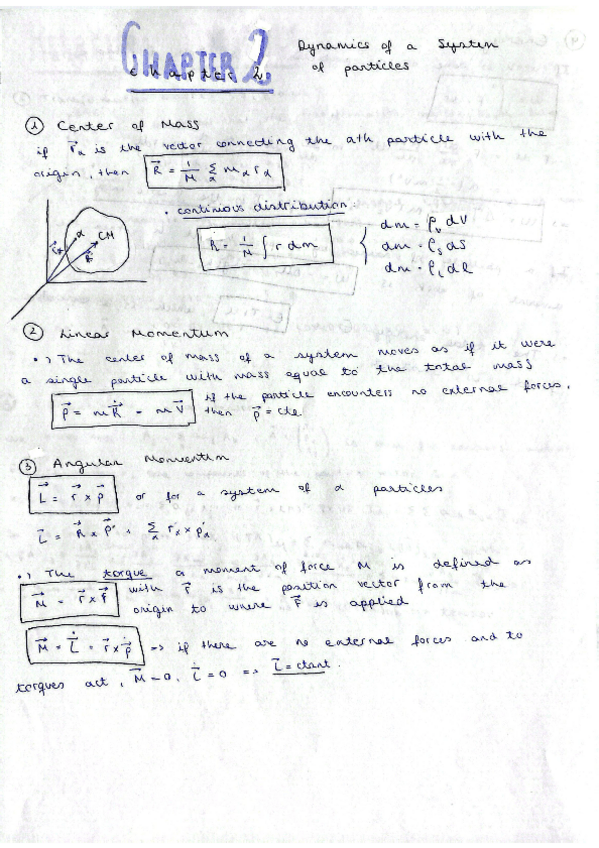 CHAPTER 2
chapter 2
Dynamics of a System
of particles
① Center of Mass
if r⃗α is the vector connecting the αth particle with the
origin, then R⃗ = 1/M Σα mα rα
• continious distribution
α CM
r⃗α R⃗
R = 1/M ∫ r dm { dm = ρv dV
dm = ρs dS
dm = ρL dl
② Linear Momentum
•) The center of mass of a system moves as if it were
a single particle with mass equal to the total mass
P⃗ = m R⃗̇ = m V⃗ if the particle encounters no external forces,
then p⃗ = cte
③ Angular Momentum
L⃗ = r⃗ × p⃗ or for a system of α particles
L⃗ = R⃗ × P⃗ + Σα r'α × p'α
•) The torque a moment of force M is defined as
M⃗ = r⃗ × F⃗ with r⃗ is the position vector from the
origin to where F⃗ is applied
M⃗ = L⃗̇ = r⃗ × p⃗̇ => if there are no external forces and to
torques act, M⃗ = 0, L⃗̇ = 0 => L⃗ = ctant.